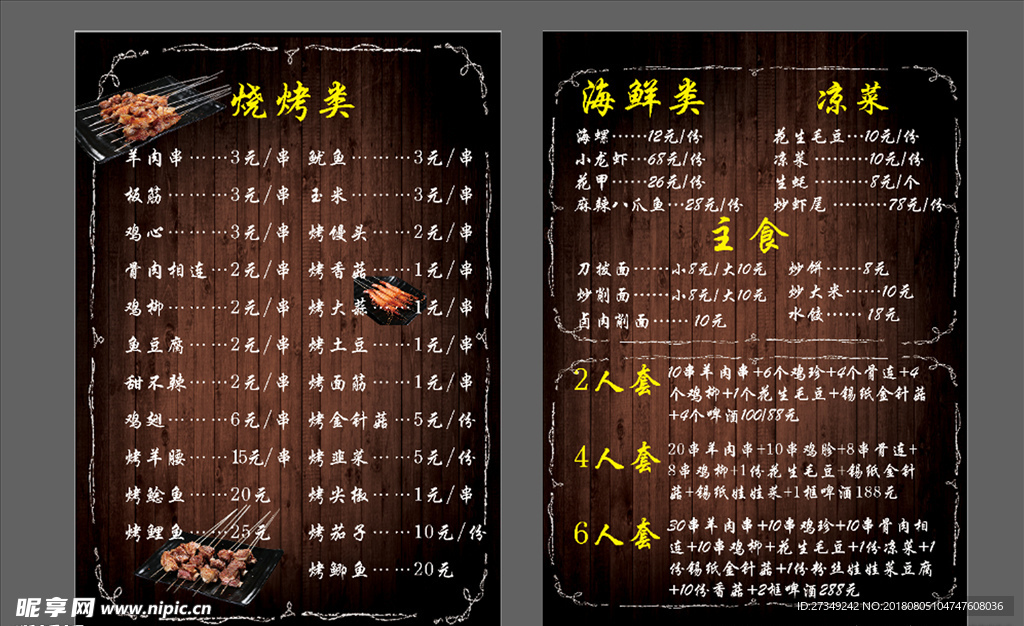 烧烤类
羊肉串……3元/串
板筋……3元/串
鸡心……3元/串
骨肉相连…2元/串
鸡柳……2元/串
鱼豆腐……2元/串
甜不辣……2元/串
鸡翅……6元/串
烤羊腰……15元/串
烤鲶鱼……20元
烤鲤鱼……25元
鱿鱼………3元/串
玉米………3元/串
烤馒头……2元/串
烤香菇……1元/串
烤大蒜……1元/串
烤土豆……1元/串
烤面筋……1元/串
烤金针菇…5元/份
烤韭菜……5元/份
烤尖椒……1元/串
烤茄子……10元/份
烤鲫鱼……20元
海鲜类
海螺……12元/份
小龙虾…68元/份
花甲……26元/份
麻辣八爪鱼…28元/份
凉菜
花生毛豆…10元/份
凉菜………10元/份
生蚝………8元/个
炒虾尾………78元/份
主食
刀拨面……小8元/大10元
炒削面……小8元/大10元
卤肉削面……10元
炒饼……8元
炒大米……10元
水饺……18元
2人套
10串羊肉串+6个鸡珍+4个骨连+4
个鸡柳+1个花生毛豆+锡纸金针菇
+4个啤酒100/88元
4人套
20串羊肉串+10串鸡胗+8串骨连+
8串鸡柳+1份花生毛豆+锡纸金针
菇+锡纸娃娃菜+1框啤酒188元
6人套
30串羊肉串+10串鸡珍+10串骨肉相
连+10串鸡柳+花生毛豆+1份凉菜+1
份锡纸金针菇+1份粉丝娃娃菜豆腐
+10份香菇+2框啤酒288元
昵享网 www.nipic.cn
ID:27349242 NO:20180805104747608036